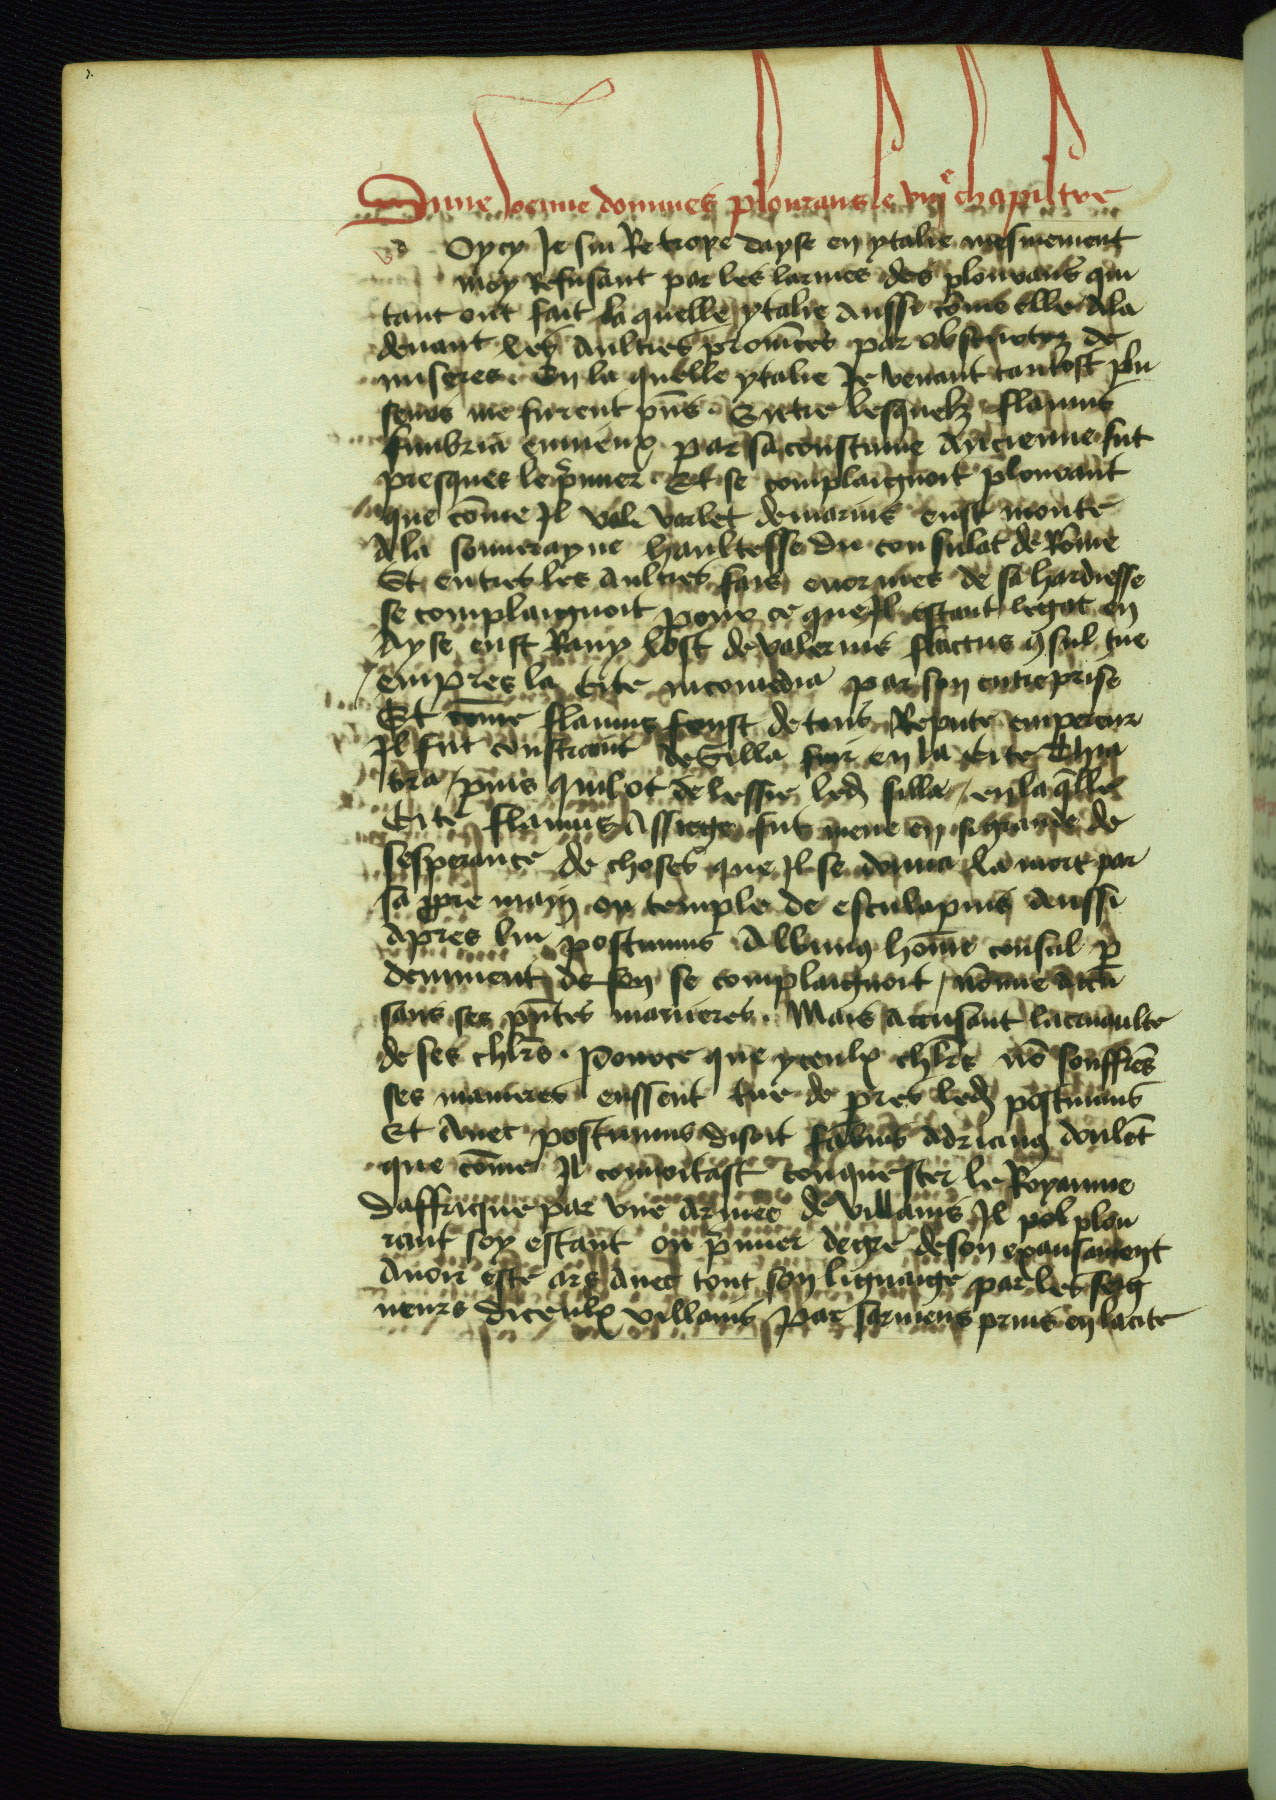 Dune venue dommes plourans le viiie chapiltre
Oycy Je sui Retrope dayse en ytalie mesmement
moy Refusant par les larmes des plourans qui
tant ont fait la quelle ytalie Aussi cōme elle Ala
deuant les Aultres prouīces par obscurtez de
miseres. En la quelle ytalie Je venant tantost plu
seurs me furent pñs. Entre lesquelz flauius
fimbria ennieux par sa coustume Ancienne fut
presques le pimier Et se complaignoit plourant
que cōme Il vale varlet de marius eust monte
Ala souuerayne haultesse du consulat de Rōme
Et entres les Aultres fais enormes de sa hardiesse
se complaignoit pour ce que Il estant legat en
Ayse eust Rauy lost de valerius flactus 9sul tue
empres la Cite nicomedia par son entreprise
Et cōme flauius feust de tous Repute empereur
Il fut constraint de Silla fuir en la Cite Thia
tira / puis quil ot delessie led silla / en laqlle
Cite flauius Assiege fut mene en si grande de
sesperance de choses que Il se donna la mort par
sa ppre main ou temple de esculapius Aussi
Apres lui postumus Albinus hōme consul
demment de soy se complaignoit / nōmie Accu
sans ses pntes manieres. Mais Accusant la cruaulte
de ses chlrs. Pource que yceulx chlrs nō souffrēs
ses manieres eussent tue de pres led postumus
Et Auec postumus disoit fabius Adrianus doulēt
que cōme Il conuoitast conquester le Royaume
daffrique par vne Armee de villains Il pol plou
rant soy estant ou pimier degre de son exaulsament
Auoir este ars Auec tout son lignaige par les seig
neurs diceulx villains Par sarmens prins en la cite